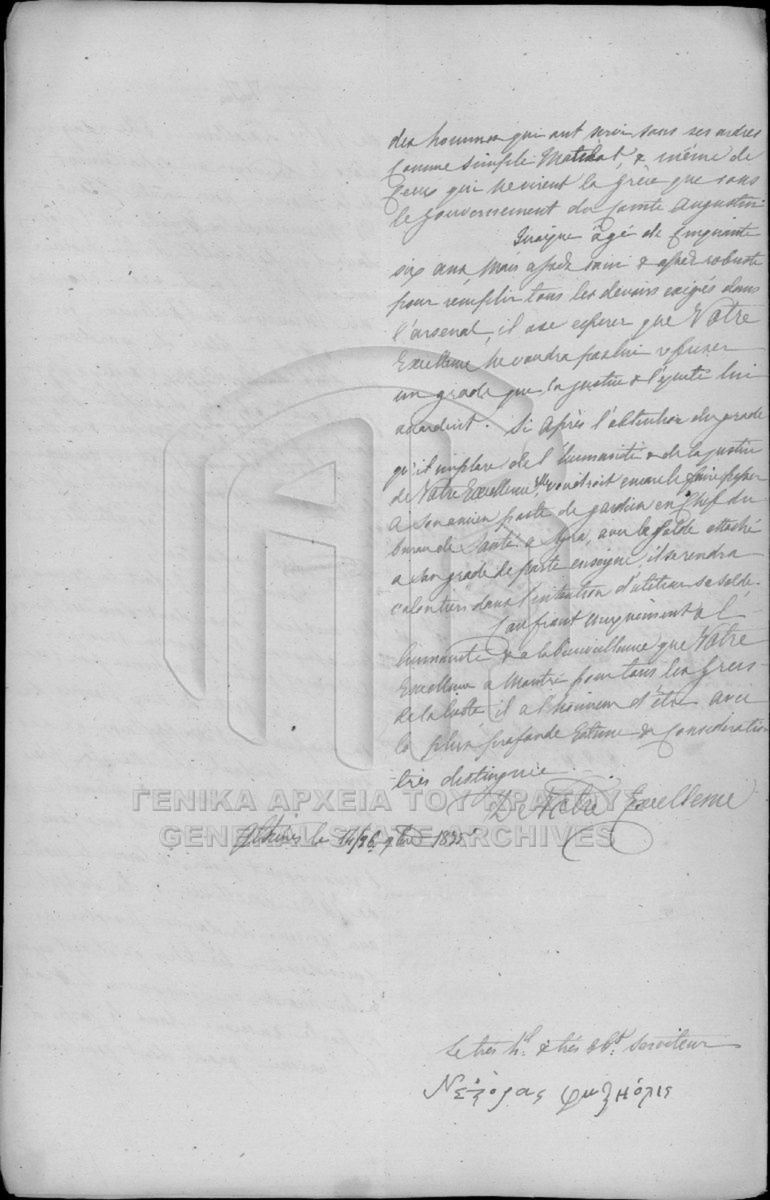 des hommes qui ont servi sous ses ordres
comme simple Matelot, & même de
ceux qui ne virent la Grèce que sous
le Gouvernement du Comte Augustin
Quoique âgé de Cinquante
six ans mais assez sain & assez robuste
pour remplir tous les devoirs exigés dans
l'arsenal, il ose esperer que Votre
Excellence ne voudra pas lui refuser
un grade que la justice & l'équité lui
accordent. Si après l'obtention du grade
qu'il implore de l'humanité & de la justice
de Votre Excellence, Elle voudroit encore le faire passer
a son ancien poste de gardien en Chef du
bureau de Santé a Syra, avec la Solde attaché
a son grade de porte enseigne, il se rendra
volontiers dans l'intention d' sa solde.
uniquement à l'
humanité & a la bienveillance que Votre
Excellence a Montré pour tous les Grecs
de la lutte il a l'honneur d'être avec
la plus profonde Estime & Consideration
très distinguée.
De Votre Excellence
Athènes le 14/26 9bre 1835
Le très hl. & très obt. Serviteur
ΓΕΝΙΚΑ ΑΡΧΕΙΑ ΤΟΥ ΚΡΑΤΟΥΣ
GENERAL STATE ARCHIVES